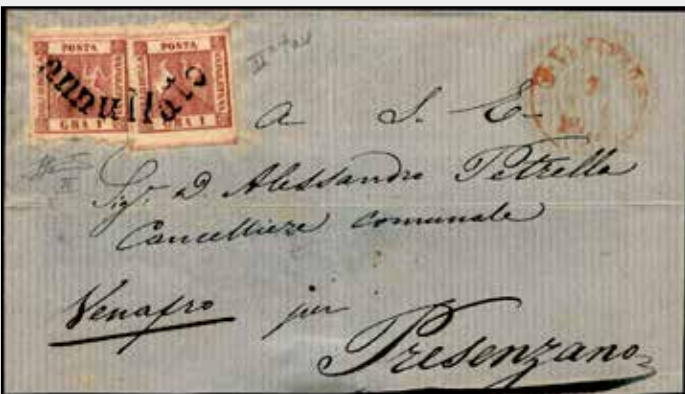 POSTA POSTA
annullato
GRA 1 GRA 1
A S. E.
Sigr. D. Alessandro Petrella
Cancelliere comunale
Venafro per
Presenzano